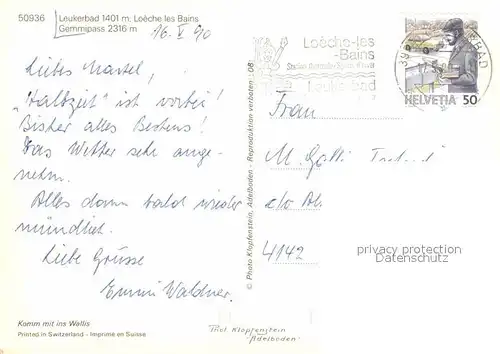 50936
Leukerbad 1401 m. Loèche les Bains
Gemmipass 2316 m
16. V 90
Liebes Martel,
"Halbzeit" ist vorbei!
Bisher alles Bestens!
Das Wetter sehr ange-
nehm.
Alles dann bald wieder
mündlich.
Liebe Grüsse
Emmi Waldner
Komm mit ins Wallis
Printed in Switzerland - Imprimé en Suisse
© Photo Klopfenstein, Adelboden - Reproduktion verboten
Phot Klopfenstein
"Adelboden"
Loèche-les
-Bains
Leukerbad
HELVETIA 50
Frau
M. Gotti
c/o
4142
privacy protection
Datenschutz